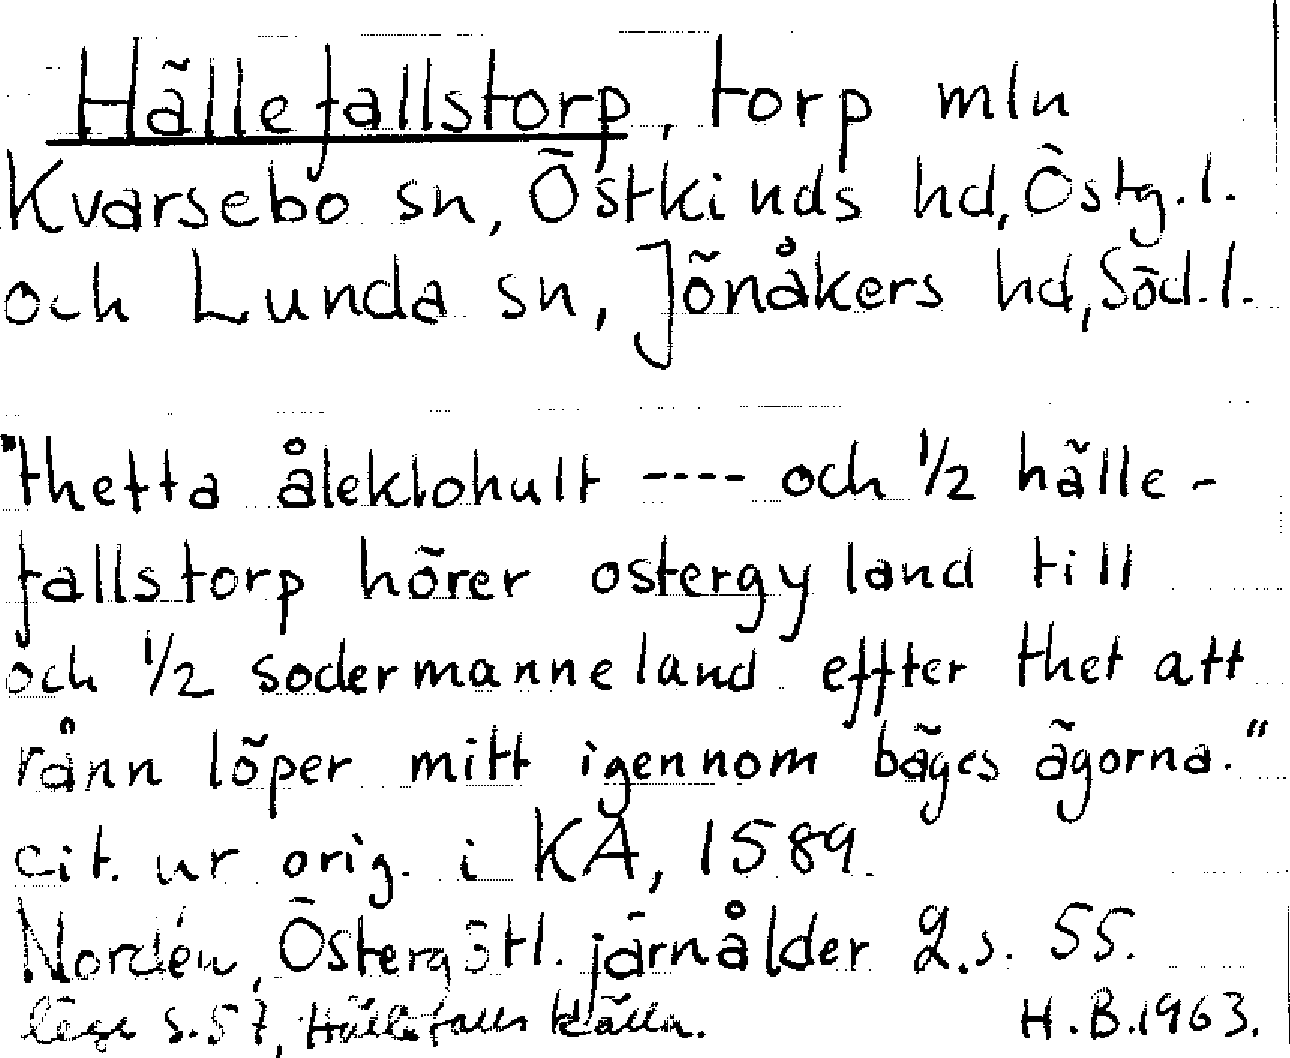 Hällefallstorp, torp mln
Kvarsebo sn, Östkinds hd, Östg.l.
och Lunda sn, Jönåkers hd, Söd.l.
"thetta åleklohult ---- och 1/2 hälle-
fallstorp hörer ostergyland till
och 1/2 sodermanneland effter thet att
rånn löper mitt igennom bäges ägorna."
cit. ur orig. i KA, 1589.
Nordén, Östergötl. järnålder 2.s. 55.
läge s. 57, Hällefalls källa. H.B.1963.